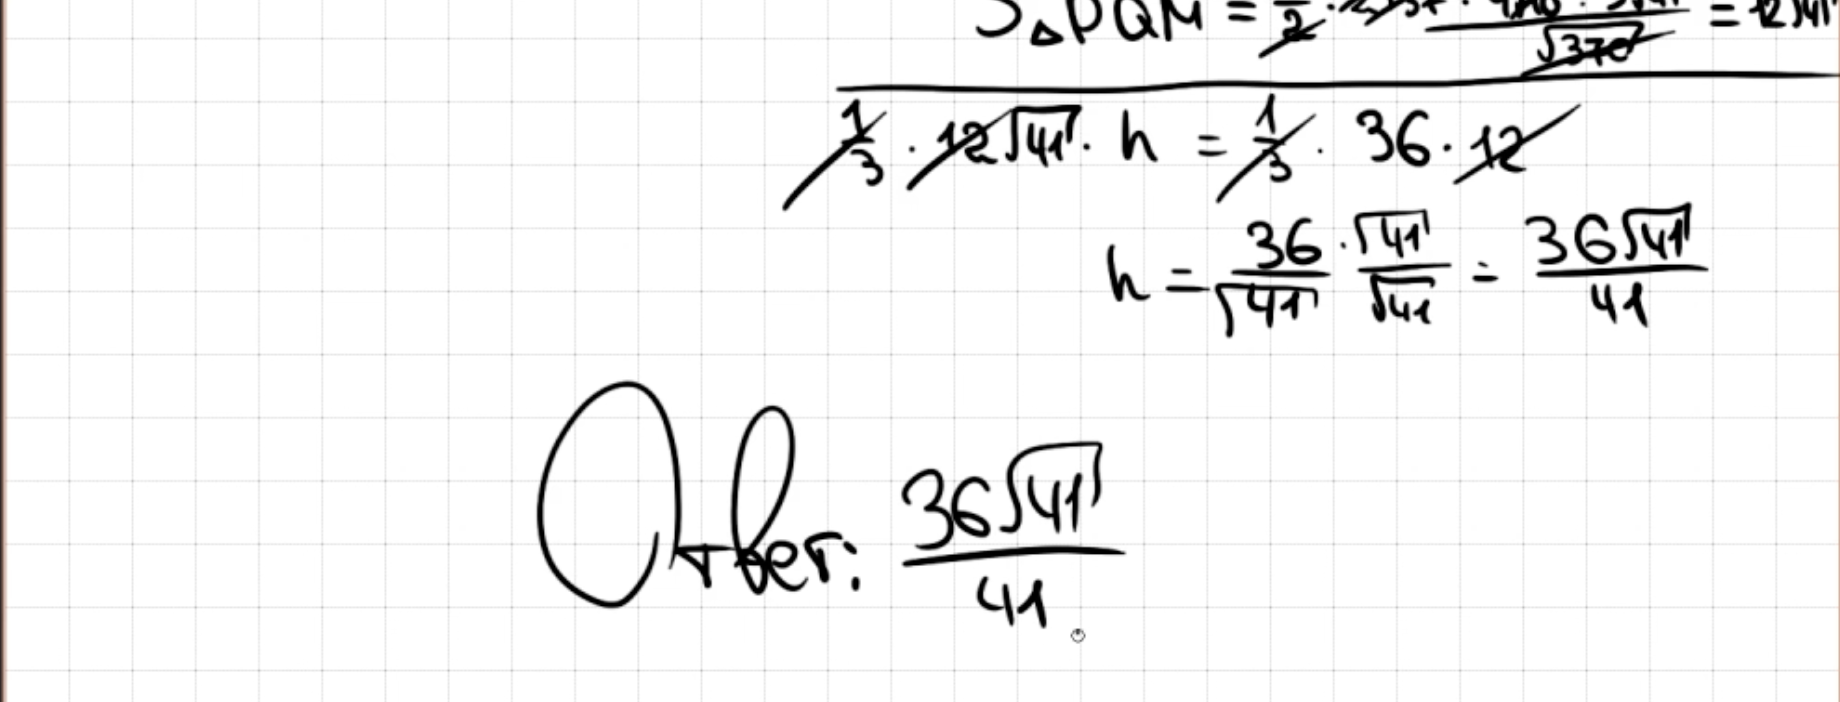 S△PQM = = 12√41
1/3 · 12√41 · h = 1/3 · 36 · 12
h = 36/√41 · √41/√41 = 36√41/41
Ответ: 36√41/41